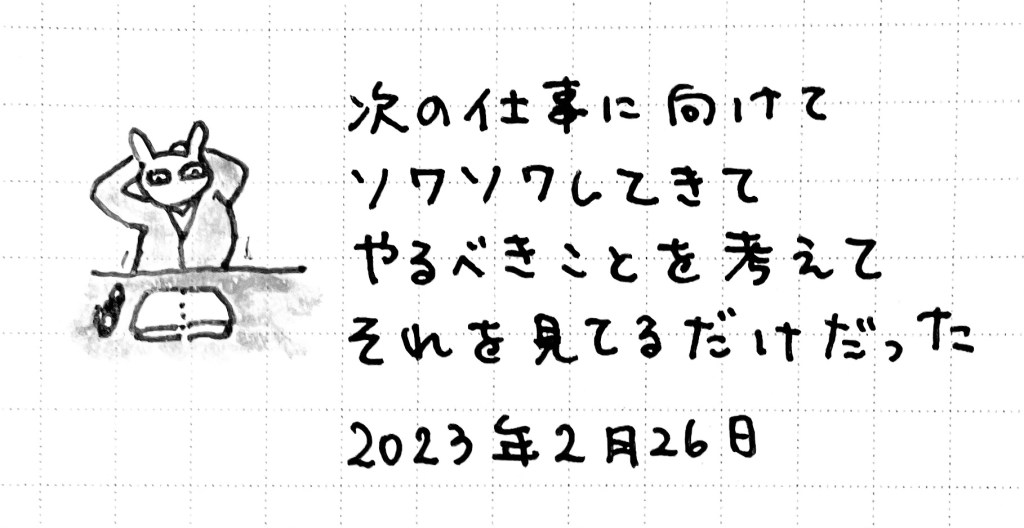 次の仕事に向けて
ソワソワしてきて
やるべきことを考えて
それを見てるだけだった
2023年2月26日